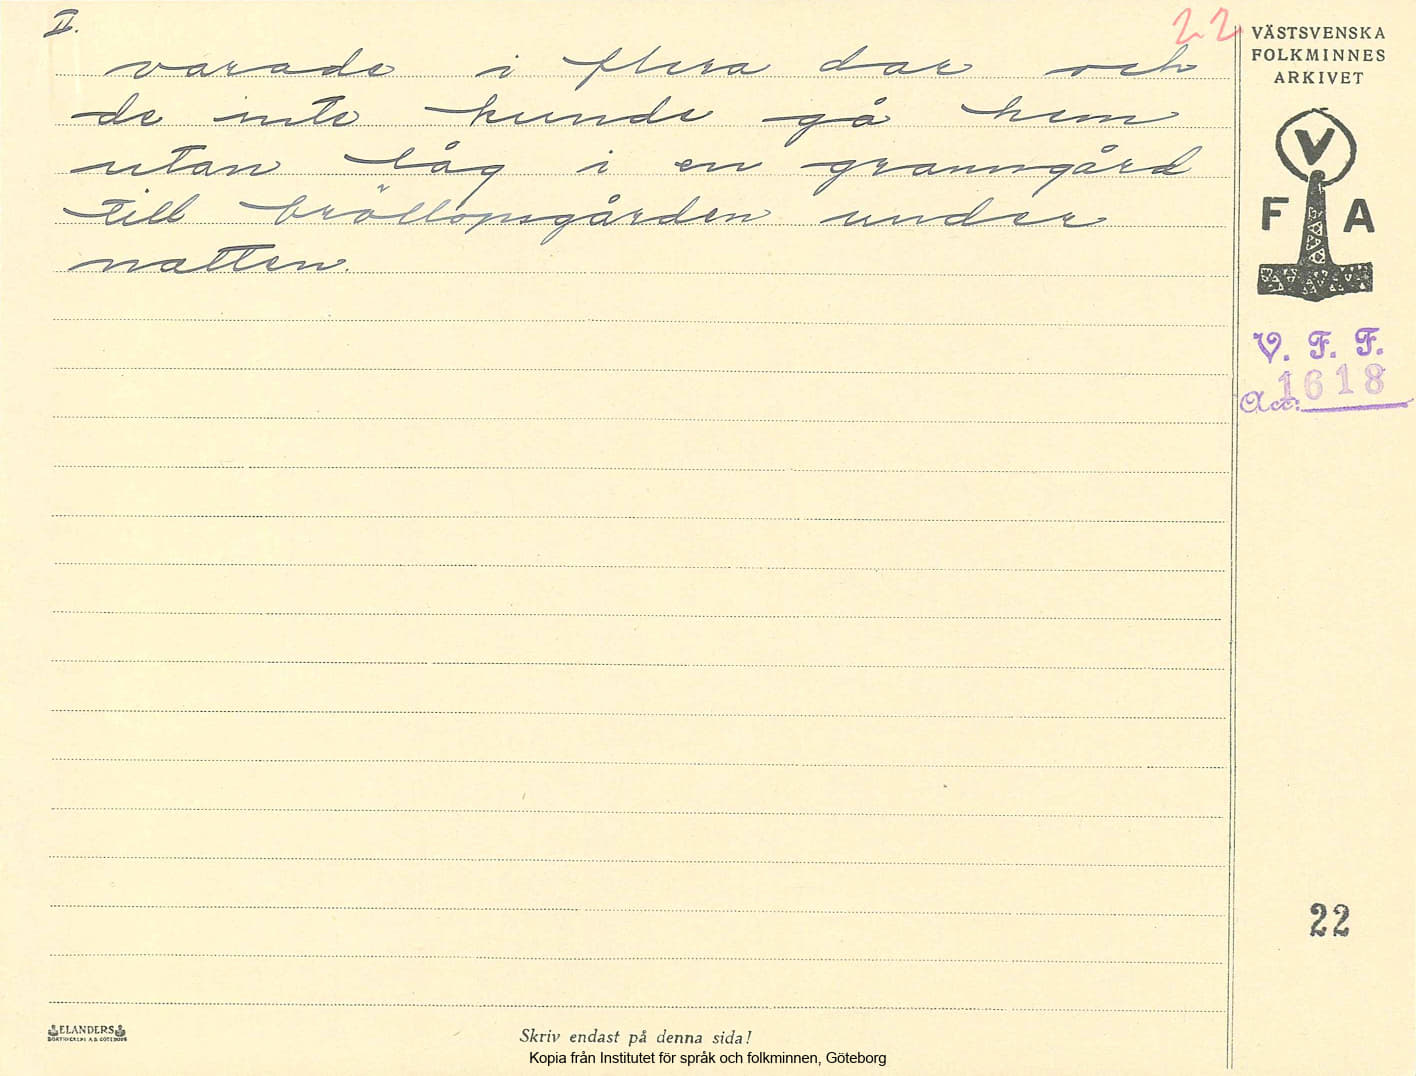 II.
22
varade i flera dar och
de inte kunde gå hem
utan låg i en granngård
till bröllopsgården under
natten.
VÄSTSVENSKA
FOLKMINNES
ARKIVET
V
F A
V. F. F.
Acc: 1618
22
ELANDERS
BOKTRYCKERI A.B. GÖTEBORG
Skriv endast på denna sida!
Kopia från Institutet för språk och folkminnen, Göteborg